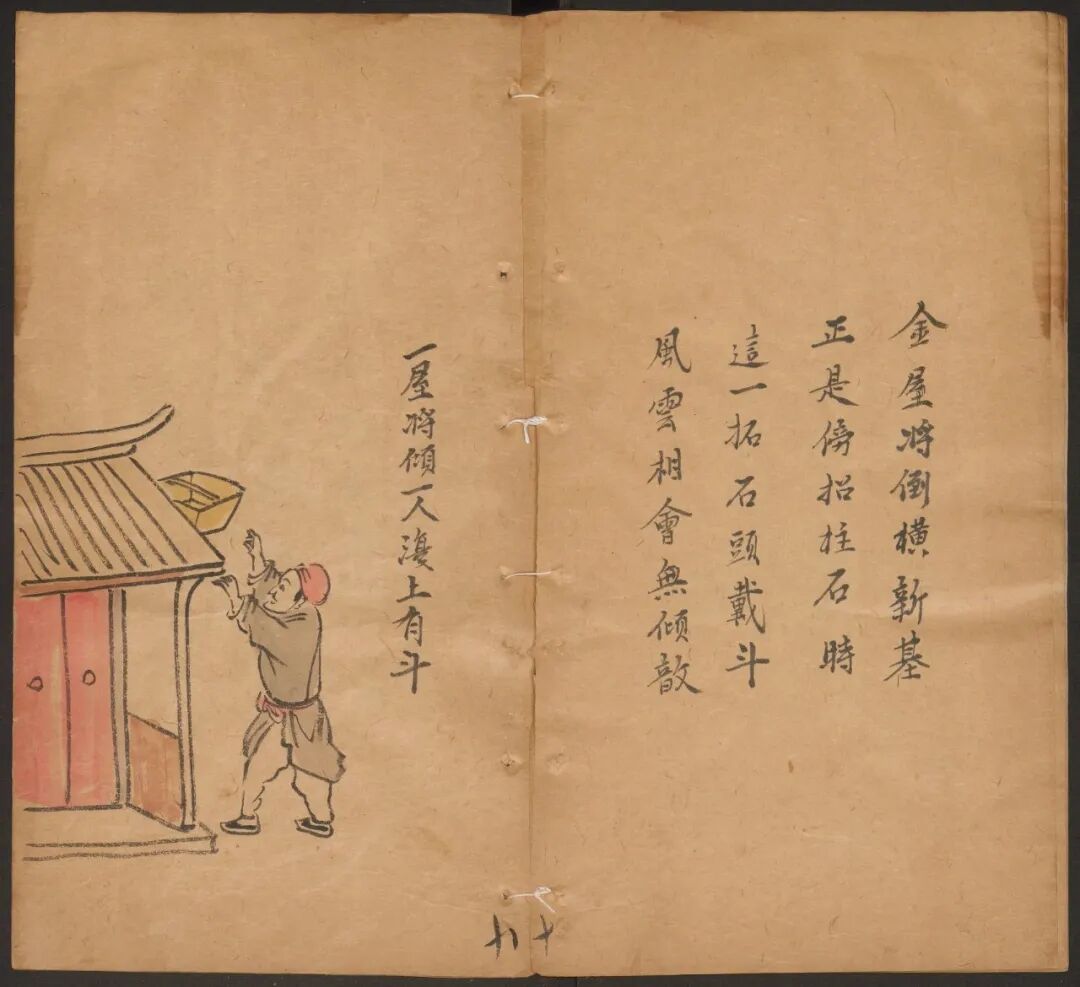 金屋將倒橫新基
正是傍招柱石時
這一拓石頭載斗
風雲相會無傾敧
一屋將傾一人邊上有斗
十八